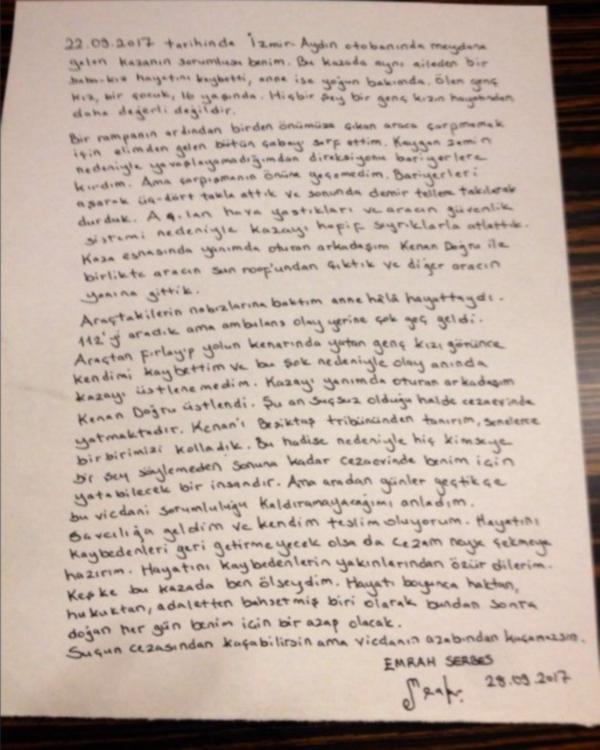 22.09.2017 tarihinde İzmir-Aydın otobanında meydana
gelen kazanın sorumlusu benim. Bu kazada aynı aileden bir
baba-kız hayatını kaybetti, anne ise yoğun bakımda. Ölen genç
kız, bir çocuk, 16 yaşında. Hiçbir şey bir genç kızın hayatından
daha değerli değildir.
Bir rampanın ardından birden önümüze çıkan araca çarpmamak
için elimden gelen bütün çabayı sarf ettim. Kaygan zemin
nedeniyle yavaşlayamadığımdan direksiyonu bariyerlere
kırdım. Ama çarpışmanın önüne geçemedim. Bariyerleri
aşarak üç-dört takla attık ve sonunda demir tellere takılarak
durduk. Açılan hava yastıkları ve aracın güvenlik
sistemi nedeniyle kazayı hafif sıyrıklarla atlattık.
Kaza esnasında yanımda oturan arkadaşım Kenan Doğru ile
birlikte aracın sun roof'undan çıktık ve diğer aracın
yanına gittik.
Araçtakilerin nabızlarına baktım anne hâlâ hayattaydı.
112'yi aradık ama ambulans olay yerine çok geç geldi.
Araçtan fırlayıp yolun kenarında yatan genç kızı görünce
kendimi kaybettim ve bu şok nedeniyle olay anında
kazayı üstlenemedim. Kazayı yanımda oturan arkadaşım
Kenan Doğru üstlendi. Şu an suçsuz olduğu halde cezaevinde
yatmaktadır. Kenan'ı Beşiktaş tribününden tanırım, senelerce
birbirimizi kolladık. Bu hadise nedeniyle hiç kimseye
bir şey söylemeden sonuna kadar cezaevinde benim için
yatabilecek bir insandır. Ama aradan günler geçtikçe
bu vicdani sorumluluğu kaldıramayacağımı anladım.
Savcılığa geldim ve kendim teslim oluyorum. Hayatını
kaybedenleri geri getirmeyecek olsa da cezam neyse çekmeye
hazırım. Hayatını kaybedenlerin yakınlarından özür dilerim.
Keşke bu kazada ben ölseydim. Hayatı boyunca haktan,
hukuktan, adaletten bahsetmiş biri olarak bundan sonra
doğan her gün benim için bir azap olacak.
Suçun cezasından kaçabilirsin ama vicdanın azabından kaçamazsın.
EMRAH SERBES
28.09.2017